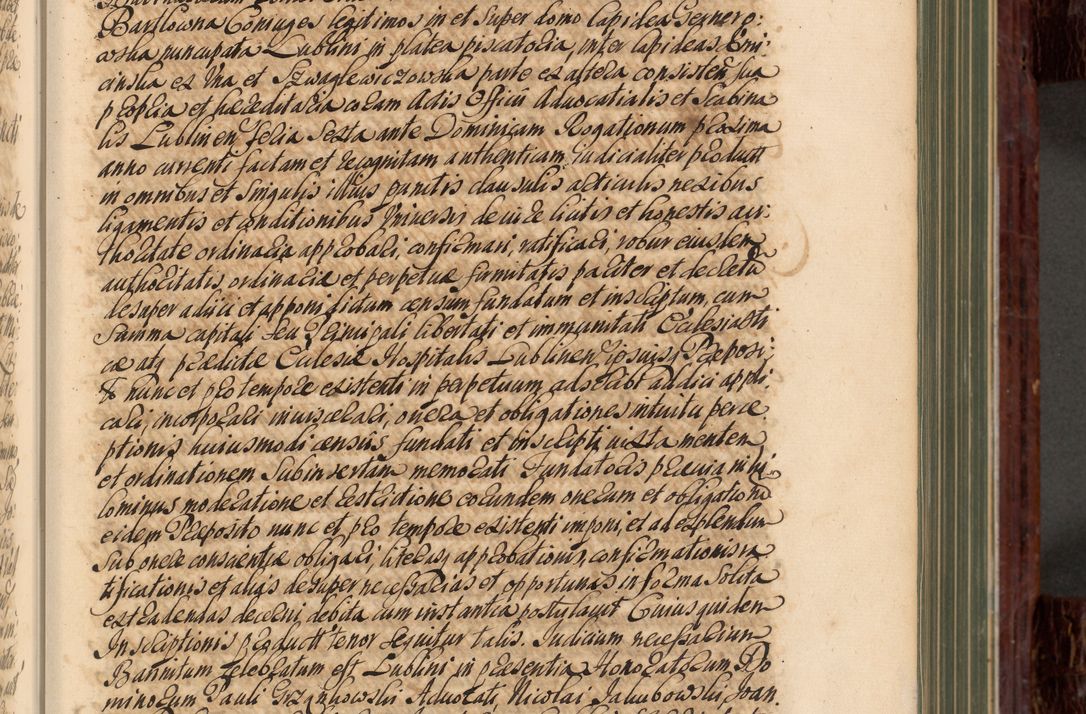 Barslowna Coniuges legitimos in et super domo lapidea Gernero:
wska nuncupata Lublini in platea piscatoria, inter lapideas Emi:
cinska ex Una et Szwaglewiczowska parte ex altera consisten sua
propria et haereditaria coram Actis Officii Advocatialis et Scabina
lis Lublinen feria Sexta ante Dominicam Rogationum proxima
anno currenti factam et recognitam authenticam judicialiter product
in omnibus et singulis illius punctis clausulis articulis nexibus
ligamentis et conditionibus Universis de iure licitis et honestis au:
thoritate ordinaria approbari, confirmari, ratificari, robur eiusdem
authoritatis ordinariae et perpetuae firmitatis pariter et decretu
desuper adiici et apponi dictum censum fundatum et inscriptum, cum
summa capitali seu Principali libertati et immunitati Ecclesiasti
cae atq praedictae Ecclesiae Hospitalis Lublinen ipsiusq Praeposi:
to nunc et pro tempore existenti in perpetuum, adscribi addici appli
cari, incorporari inviscerari, onera et obligationes intuitu perce
ptionis huiusmodi census fundati et inscripti iuxta mentem
et ordinationem subinsertam memorati Fundatoris praevia nihi
lominus moderatione et restrictione eorundem onerum et obligationu
eidem Praeposito nunc et pro tempore existenti imponi, et ad explendum
sub onere conscientiae obligari, literasq approbationis, confirmationis ra
tificationis et alias desuper necessarias et opportunas in forma solita
extradendas decerni, debita cum instantia postulavit Cuius quidem
Inscriptionis product tenor sequitur talis. Judicium necessarium
Bannitum celebratum est Lublini in praesentia Honoratorum Do
minorum Pauli Grzankowski Advocati, Nicolai Jakubowski, Joan